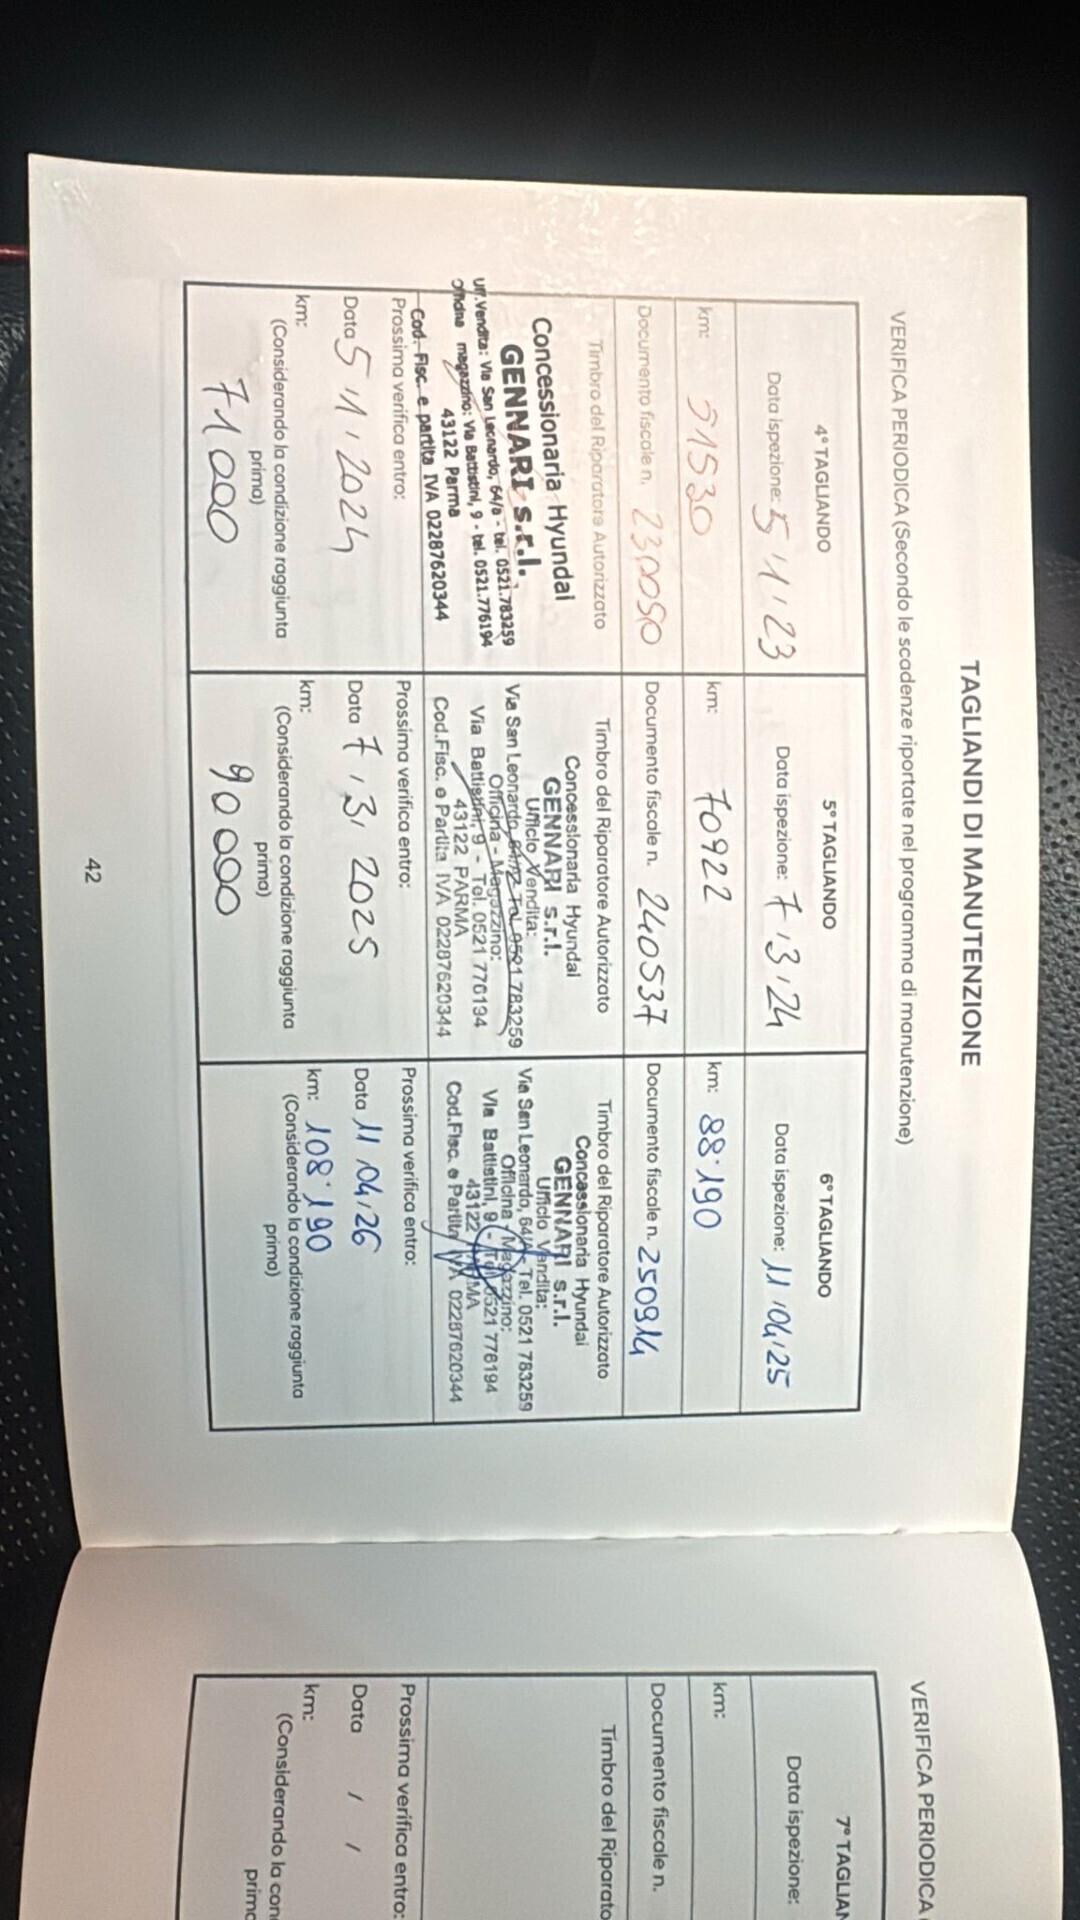 TAGLIANDI DI MANUTENZIONE
VERIFICA PERIODICA (Secondo le scadenze riportate nel programma di manutenzione)
4° TAGLIANDO
Data ispezione: 5/1/23
km: 51530
Documento fiscale n. 230050
Timbro del Riparatore Autorizzato
Concessionaria Hyundai
GENNARI s.r.l.
Uff.Vendita: Via San Leonardo, 64/a - tel. 0521.783259
Officina magazzino: Via Battistini, 9 - tel. 0521.776194
43122 Parma
Cod. Fisc. e partita IVA 02287620344
Prossima verifica entro:
Data 5/1/2024
km:
(Considerando la condizione raggiunta
prima)
71000
5° TAGLIANDO
Data ispezione: 7/3/24
km: 70922
Documento fiscale n. 240537
Timbro del Riparatore Autorizzato
Concessionaria Hyundai
GENNARI s.r.l.
Ufficio Vendita:
Via San Leonardo, 64/A - Tel. 0521 783259
Officina - Magazzino:
Via Battistini, 9 - Tel. 0521 776194
43122 PARMA
Cod.Fisc. e Partita IVA 02287620344
Prossima verifica entro:
Data 7/3/2025
km:
(Considerando la condizione raggiunta
prima)
90000
6° TAGLIANDO
Data ispezione: 11/04/25
km: 88.190
Documento fiscale n. 250914
Timbro del Riparatore Autorizzato
Concessionaria Hyundai
GENNARI s.r.l.
Ufficio Vendita:
Via San Leonardo, 64/A - Tel. 0521 783259
Officina - Magazzino:
Via Battistini, 9 - Tel. 0521 776194
43122 PARMA
Cod.Fisc. e Partita IVA 02287620344
Prossima verifica entro:
Data 11/04/26
km: 108.190
(Considerando la condizione raggiunta
prima)
42
VERIFICA PERIODICA
7° TAGLIAN
Data ispezione:
km:
Documento fiscale n.
Timbro del Riparato
Prossima verifica entro:
Data / /
km:
(Considerando la con
prima